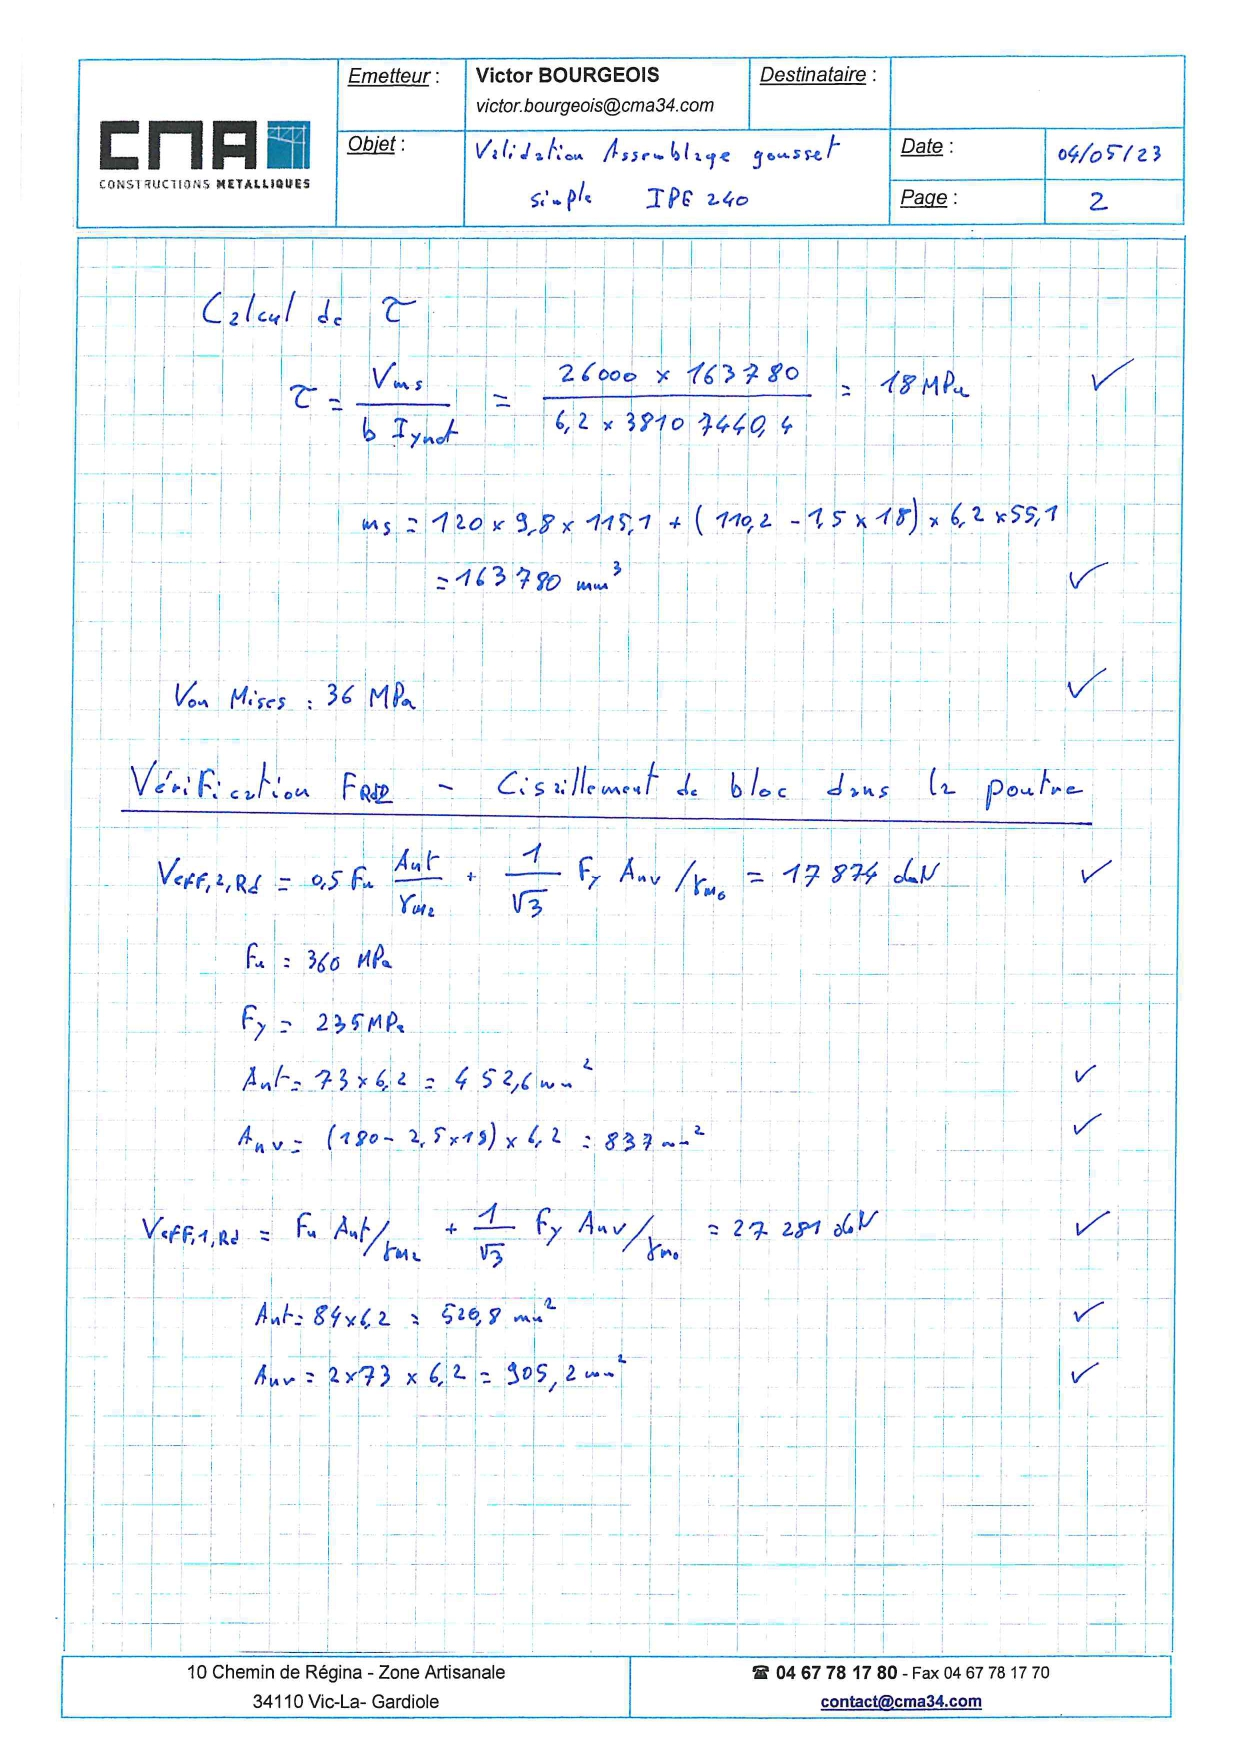 CMA
CONSTRUCTIONS METALLIQUES
Emetteur : Victor BOURGEOIS
victor.bourgeois@cma34.com
Destinataire :
Objet : Validation Assemblage gousset
simple IPE 240
Date : 04/05/23
Page : 2
Calcul de τ
τ = Vms / b Iynet = 26000 x 163780 / 6,2 x 38107440,4 = 18 MPa ✓
ms = 120 x 9,8 x 115,1 + (110,2 - 1,5 x 18) x 6,2 x 55,1
= 163780 mm³ ✓
Von Mises : 36 MPa ✓
Vérification FRd2 - Cisaillement de bloc dans la poutre
Veff,2,Rd = 0,5 Fu Ant/γM2 + 1/√3 Fy Anv/γM0 = 17 874 daN ✓
Fu = 360 MPa
Fy = 235 MPa
Ant = 73 x 6,2 = 452,6 mm² ✓
Anv = (180 - 2,5 x 18) x 6,2 = 837 mm² ✓
Veff,1,Rd = Fu Ant/γM2 + 1/√3 Fy Anv/γM0 = 27 281 daN ✓
Ant = 84 x 6,2 = 520,8 mm² ✓
Anv = 2 x 73 x 6,2 = 905,2 mm² ✓
10 Chemin de Régina - Zone Artisanale
34110 Vic-La- Gardiole
☎ 04 67 78 17 80 - Fax 04 67 78 17 70
contact@cma34.com